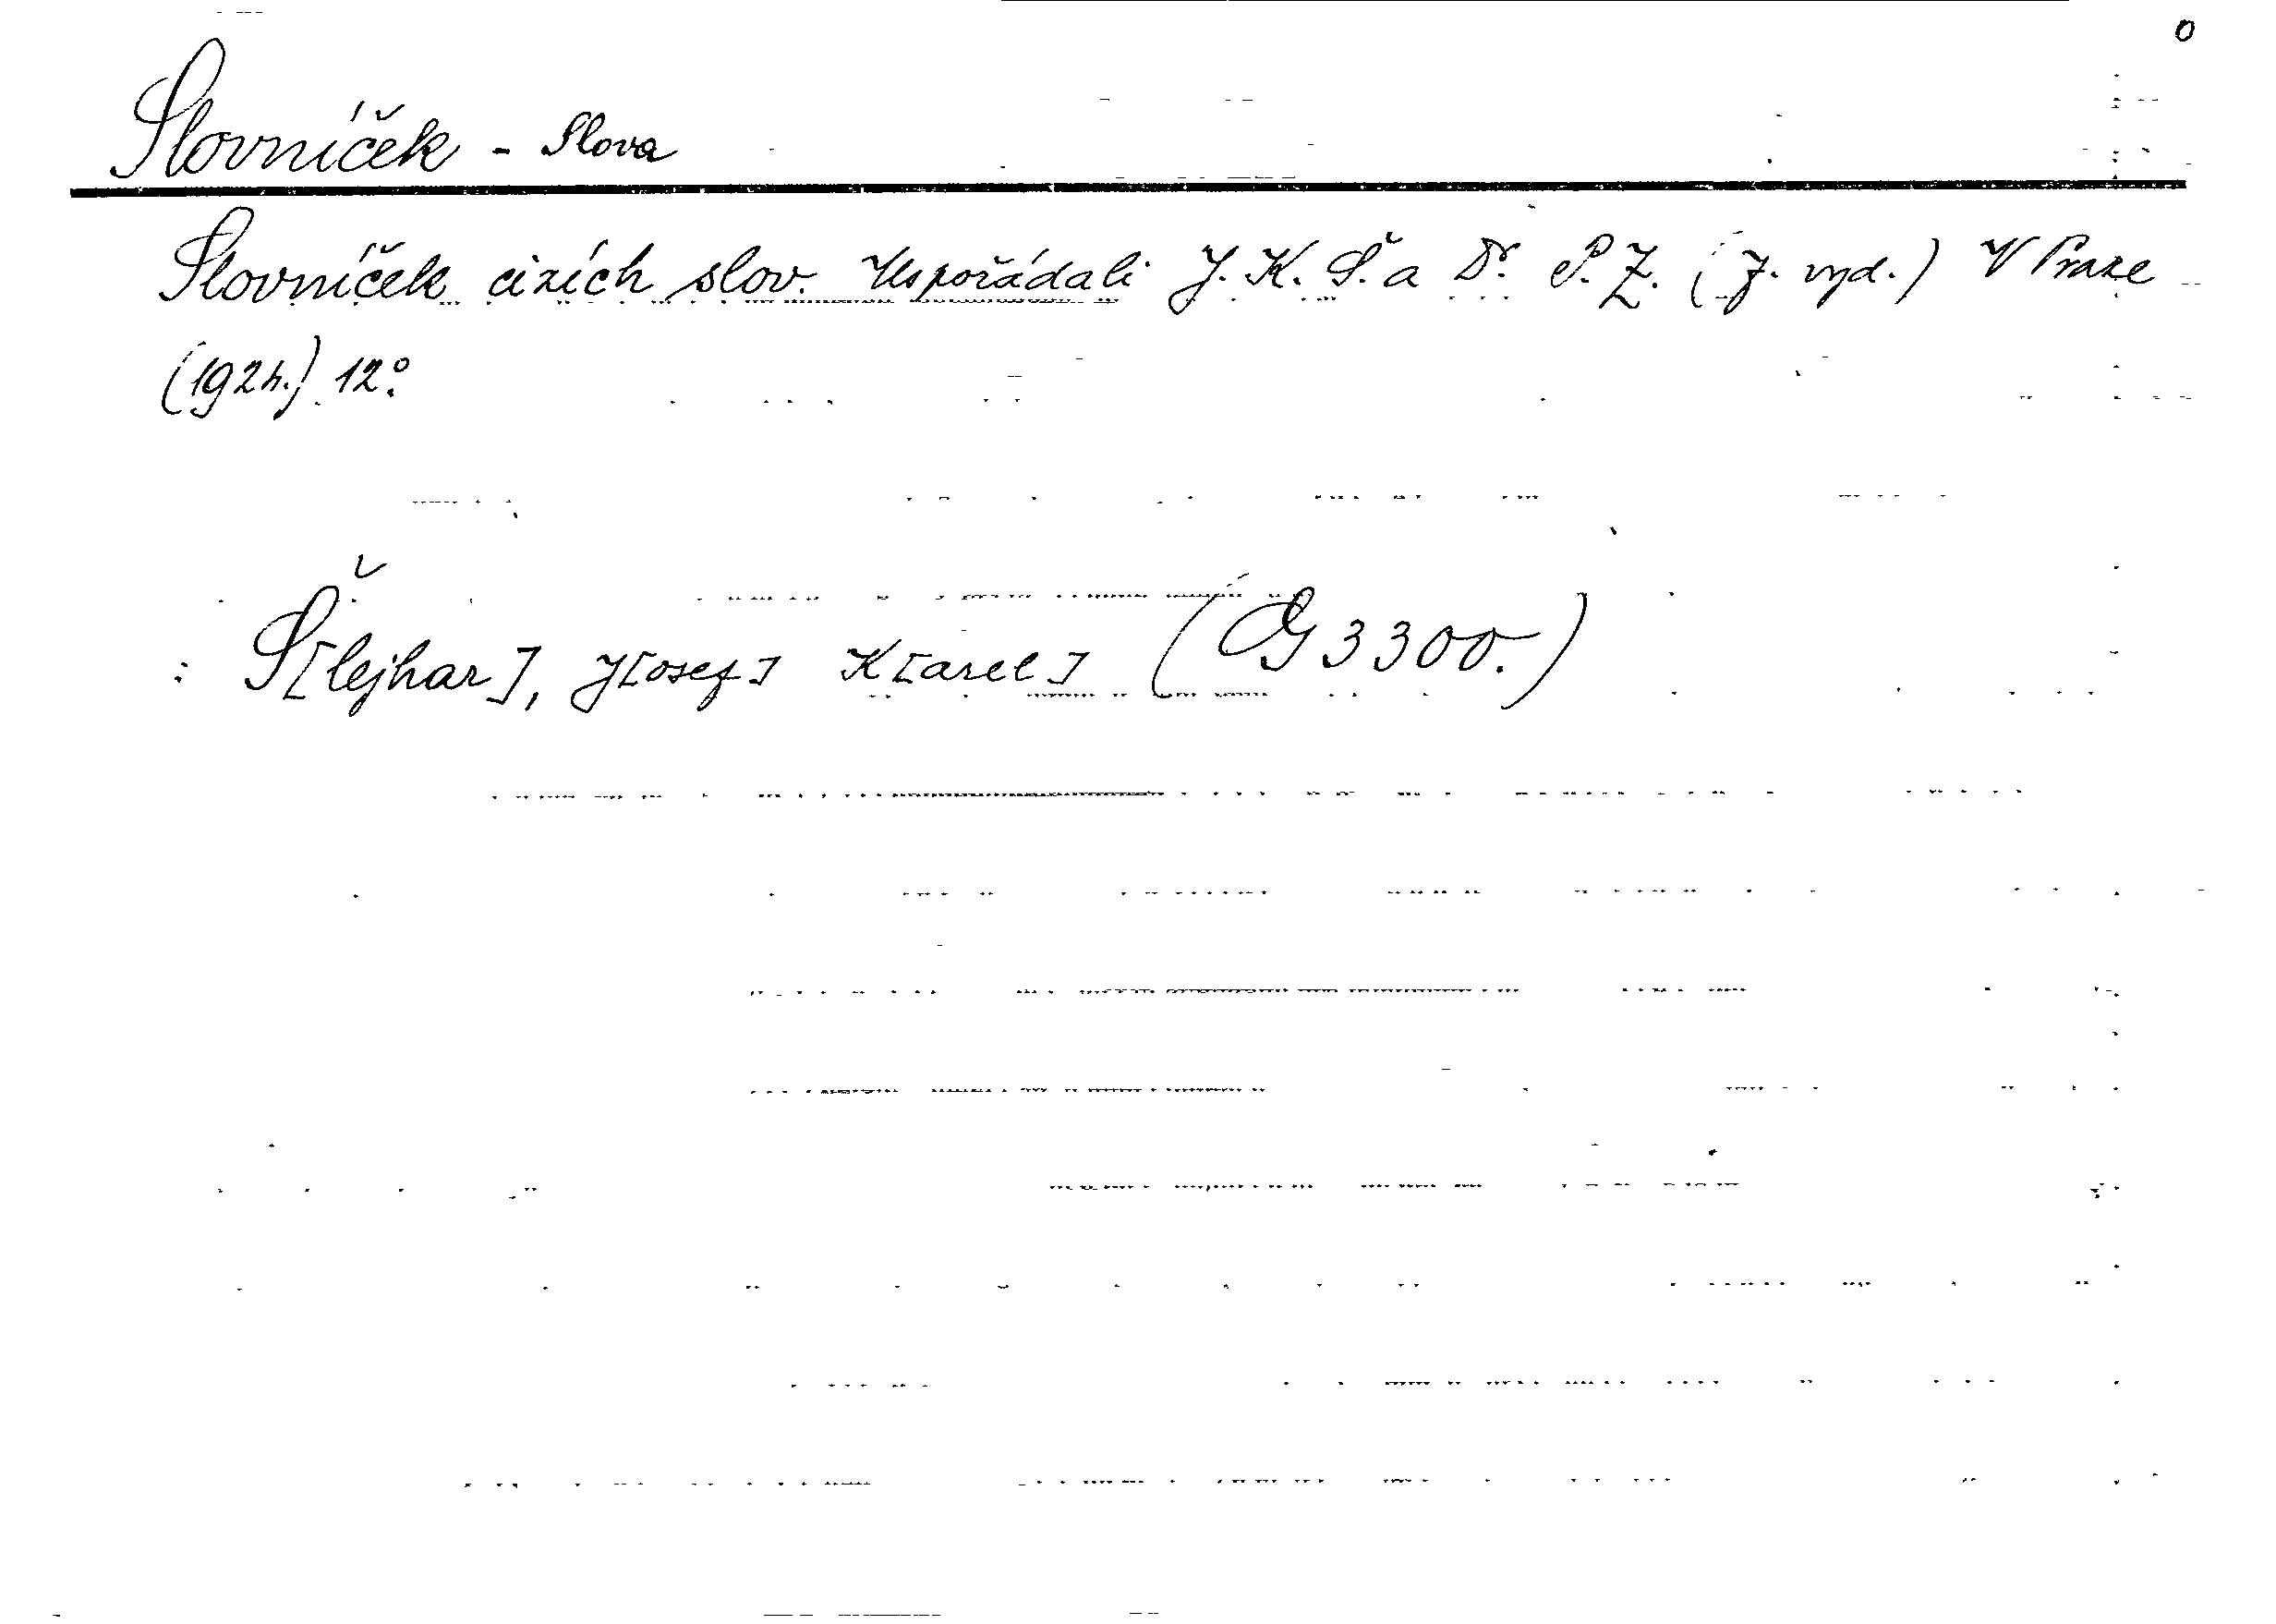 0
Slovníček - Slova
Slovníček cizích slov. Uspořádali J. K. Š. a Dr. P. Z. (7. vyd.) V Praze
(1924.) 12°.
: Š[lejhar], J[osef] K[arel] (G 3300.)